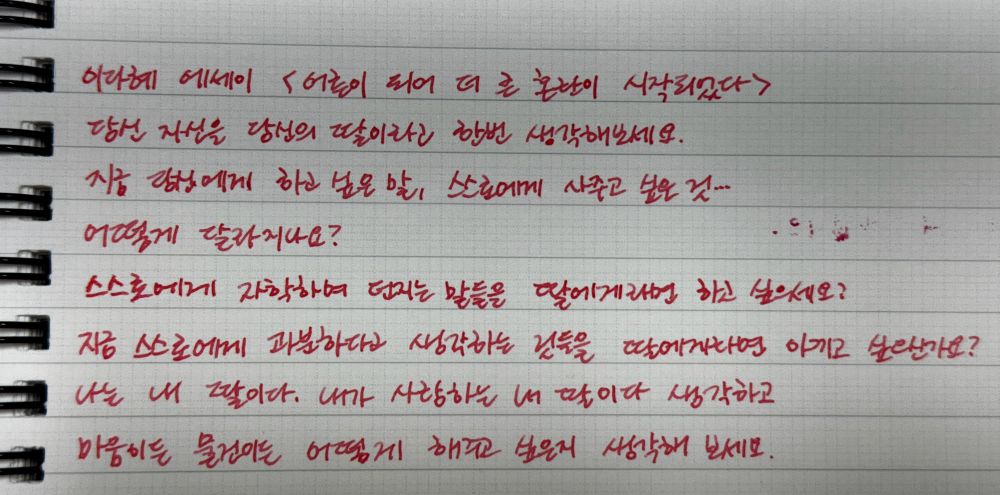 이다혜 에세이 <어른이 되어 더 큰 혼란이 시작되었다>
당신 자신을 당신의 딸이라고 한번 생각해보세요.
지금 당신에게 하고 싶은 말, 스스로에게 사주고 싶은 것...
어떻게 달라지나요?
스스로에게 자학하며 던지는 말들을 딸에게라면 하고 싶으세요?
지금 스스로에게 과분하다고 생각하는 것들을 딸에게라면 아끼고 싶으신가요?
나는 내 딸이다. 내가 사랑하는 내 딸이다 생각하고
마음이든 물건이든 어떻게 해주고 싶은지 생각해 보세요.